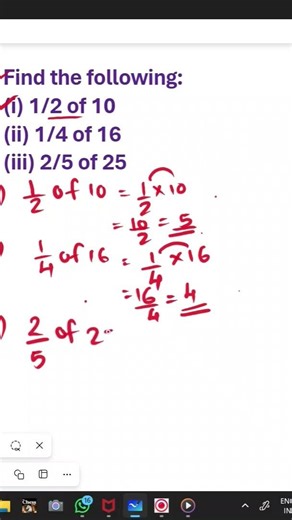 Find the following:
(i) 1/2 of 10
(ii) 1/4 of 16
(iii) 2/5 of 25
) 1/2 of 10 = 1/2 × 10
= 10/2 = 5
) 1/4 of 16 = 1/4 × 16
= 16/4 = 4
) 2/5 of 2
16
EN
IN